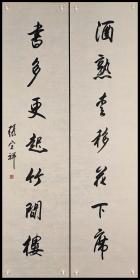 酒熟重移花下席
書多更起竹間樓
張全祥